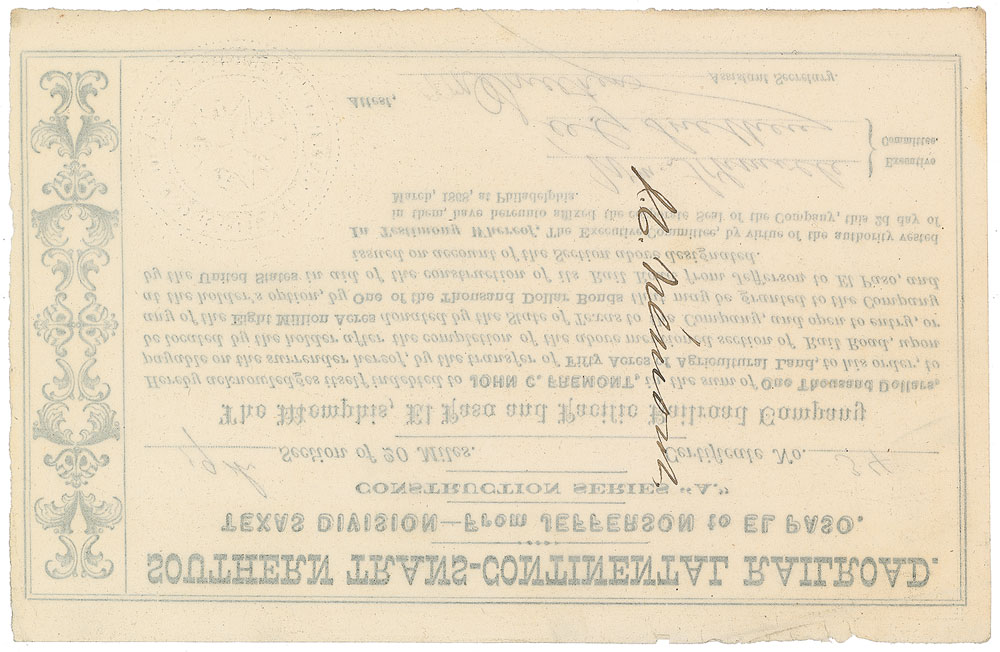 SOUTHERN TRANS-CONTINENTAL RAILROAD.
TEXAS DIVISION—From JEFFERSON to EL PASO.
CONSTRUCTION SERIES "A."
Section of 20 Miles. Certificate No. 34
The Memphis, El Paso and Pacific Railroad Company
Hereby acknowledges itself indebted to JOHN C. FREMONT, in the sum of One Thousand Dollars,
payable on the surrender hereof, by the transfer of Fifty Acres of Agricultural Land, to his order, to
be located by the holder after the completion of the above mentioned section of Rail Road, upon
any of the Eight Million Acres donated by the State of Texas to this Company, and open to entry, or
at the holder's option, by One of the Thousand Dollar Bonds that may be granted to the Company
by the United States in aid of the construction of its Rail Road from Jefferson to El Paso, and
issued on account of the Section above designated.
In Testimony Whereof, The Executive Committee, by virtue of the authority vested
in them, have hereunto affixed the Corporate Seal of the Company, this 2d day of
March, 1868, at Philadelphia.
Executive
Committee.
Attest,
Assistant Secretary.
J. C. Frémont